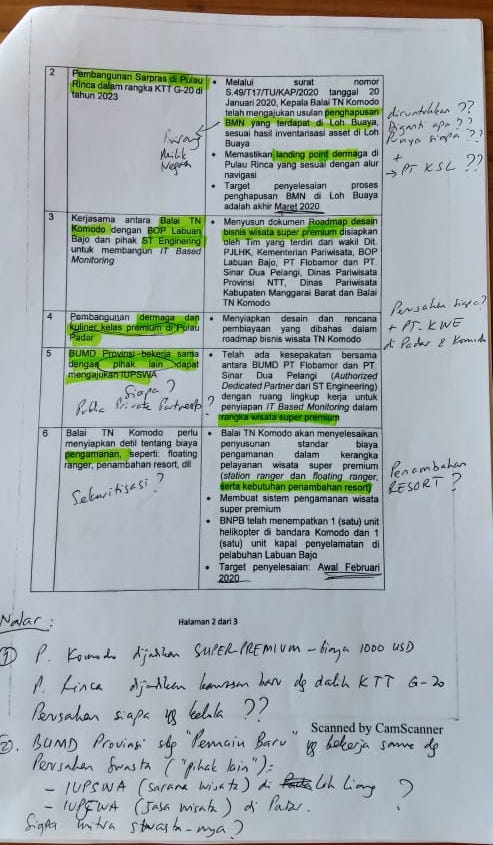 2
Pembangunan Sarpras di Pulau
Rinca dalam rangka KTT G-20 di
tahun 2023
• Melalui surat nomor
S.49/T17/TU/KAP/2020 tanggal 20
Januari 2020, Kepala Balai TN Komodo
telah mengajukan usulan penghapusan
BMN yang terdapat di Loh Buaya,
sesuai hasil inventarisasi asset di Loh
Buaya
• Memastikan landing point dermaga di
Pulau Rinca yang sesuai dengan alur
navigasi
• Target penyelesaian proses
penghapusan BMN di Loh Buaya
adalah akhir Maret 2020
Barang
Milik
Negara
diruntuhkan ??
Diganti apa ??
Punya siapa ??
+
→ PT KSL ??
3
Kerjasama antara Balai TN
Komodo dengan BOP Labuan
Bajo dan pihak ST Enginering
untuk membangun IT Based
Monitoring
• Menyusun dokumen Roadmap desain
bisnis wisata super premium disiapkan
oleh Tim yang terdiri dari wakil Dit.
PJLHK, Kementerian Pariwisata, BOP
Labuan Bajo, PT Flobamor dan PT.
Sinar Dua Pelangi, Dinas Pariwisata
Provinsi NTT, Dinas Pariwisata
Kabupaten Manggarai Barat dan Balai
TN Komodo
4
Pembangunan dermaga dan
kuliner kelas premium di Pulau
Padar
• Menyiapkan desain dan rencana
pembiayaan yang dibahas dalam
roadmap bisnis wisata TN Komodo
Perusahan siapa?
+ PT. KWE
di Padar & Komodo
5
BUMD Provinsi bekerja sama
dengan pihak lain dapat
mengajukan IUPSWA
Siapa ?
Public Private Partnership ?
• Telah ada kesepakatan bersama
antara BUMD PT Flobamor dan PT.
Sinar Dua Pelangi (Authorized
Dedicated Partner dari ST Engineering)
dengan ruang lingkup kerja untuk
penyiapan IT Based Monitoring dalam
rangka wisata super premium
6
Balai TN Komodo perlu
menyiapkan detil tentang biaya
pengamanan, seperti: floating
ranger, penambahan resort, dll
Sekuritisasi ?
• Balai TN Komodo akan menyelesaikan
penyusunan standar biaya
pengamanan dalam kerangka
pelayanan wisata super premium
(station ranger dan floating ranger,
serta kebutuhan penambahan resort)
• Membuat sistem pengamanan wisata
super premium
• BNPB telah menempatkan 1 (satu) unit
helikopter di bandara Komodo dan 1
(satu) unit kapal penyelamatan di
pelabuhan Labuan Bajo
• Target penyelesaian: Awal Februari
2020
Penambahan
RESORT ?
Halaman 2 dari 3
Nalar :
1 P. Komodo dijadikan SUPER-PREMIUM – biaya 1000 USD
P. Rinca dijadikan kawasan baru dg dalih KTT G-20
Perusahan siapa yg kelola ??
Scanned by CamScanner
2. BUMD Provinsi sbg "Pemain Baru" yg bekerja sama dg
Perusahan Swasta ("pihak lain"):
– IUPSWA (sarana wisata) di Loh Liang ?
– IUPJWA (Jasa wisata) di Padar.
Siapa mitra swasta-nya ?